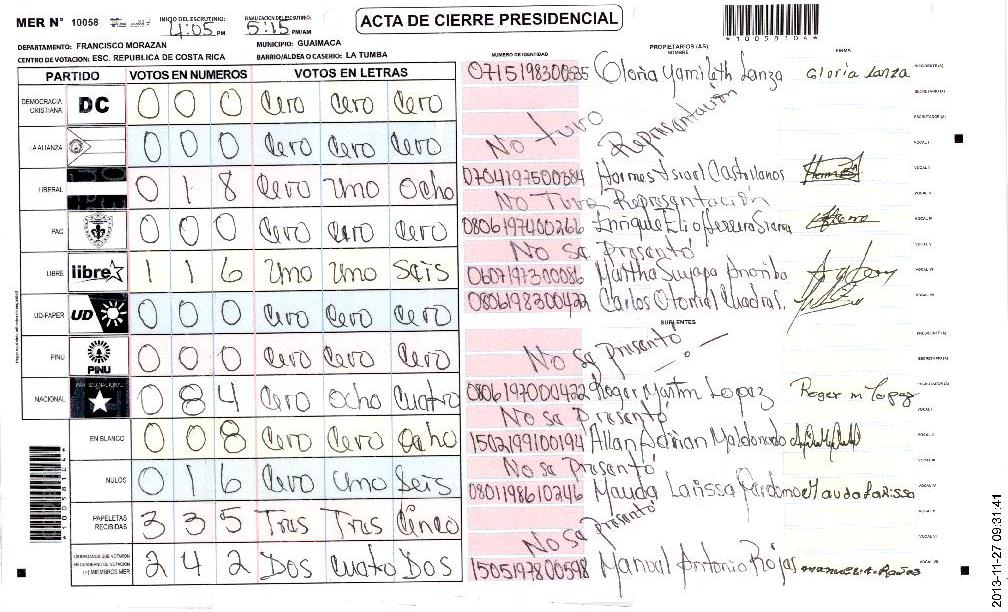 MER N° 10058
INICIO DEL ESCRUTINIO: 4:05 PM
FINALIZACION DEL ESCRUTINIO: 5:15 PM/AM
ACTA DE CIERRE PRESIDENCIAL
*10058104*
DEPARTAMENTO: FRANCISCO MORAZAN
MUNICIPIO: GUAIMACA
CENTRO DE VOTACION: ESC. REPUBLICA DE COSTA RICA
BARRIO/ALDEA O CASERIO: LA TUMBA
PARTIDO VOTOS EN NUMEROS VOTOS EN LETRAS
DEMOCRACIA CRISTIANA DC 0 0 0 Cero Cero Cero
LA ALIANZA 0 0 0 Cero Cero Cero
LIBERAL 0 1 8 Cero Uno Ocho
PAC 0 0 0 Cero Cero Cero
LIBRE libre 1 1 6 Uno Uno Seis
UD-FAPER UD 0 0 0 Cero Cero Cero
PINU PINU 0 0 0 Cero Cero Cero
NACIONAL PARTIDO NACIONAL 0 8 4 Cero Ocho Cuatro
EN BLANCO 0 0 8 Cero Cero Ocho
NULOS 0 1 6 Cero Uno Seis
PAPELETAS RECIBIDAS 3 3 5 Tres Tres Cinco
CIUDADANOS QUE VOTARON EN CUADERNO DE VOTACION (+) MIEMBROS MER 2 4 2 Dos Cuatro Dos
NUMERO DE IDENTIDAD PROPIETARIOS (AS) NOMBRE FIRMA
Gloria Yamileth Lanza Gloria Lanza PRESIDENTE (A)
SECRETARIO (A)
ESCRUTADOR (A)
No tuvo Representación VOCAL I
0704197500384 Castellanos VOCAL II
No Tuvo Representación
0806197400266 Enrique VOCAL IV
No se Presentó VOCAL V
0607197300086 Martha Suyapa VOCAL VI
0806198300422 Carlos Otoniel VOCAL VII
SUPLENTES
PRESIDENTE (A)
No se Presentó SECRETARIO (A)
0806197000422 Roger Martin Lopez Roger M Lopez ESCRUTADOR (A)
No se Presentó VOCAL I
1502199100194 Allan Adrian Maldonado VOCAL II
No se Presentó VOCAL III
0801198610246 Mayda Larissa Mayda Larissa VOCAL IV
No se Presentó VOCAL VI
1505197800598 Manuel Antonio Rojas Manuel A. Rojas VOCAL VII
*10058104*
2013-11-27 09:31:41